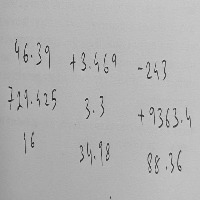 46.39 +3.469 -243
729.425 3.3 +9363.4
16 34.98 88.36